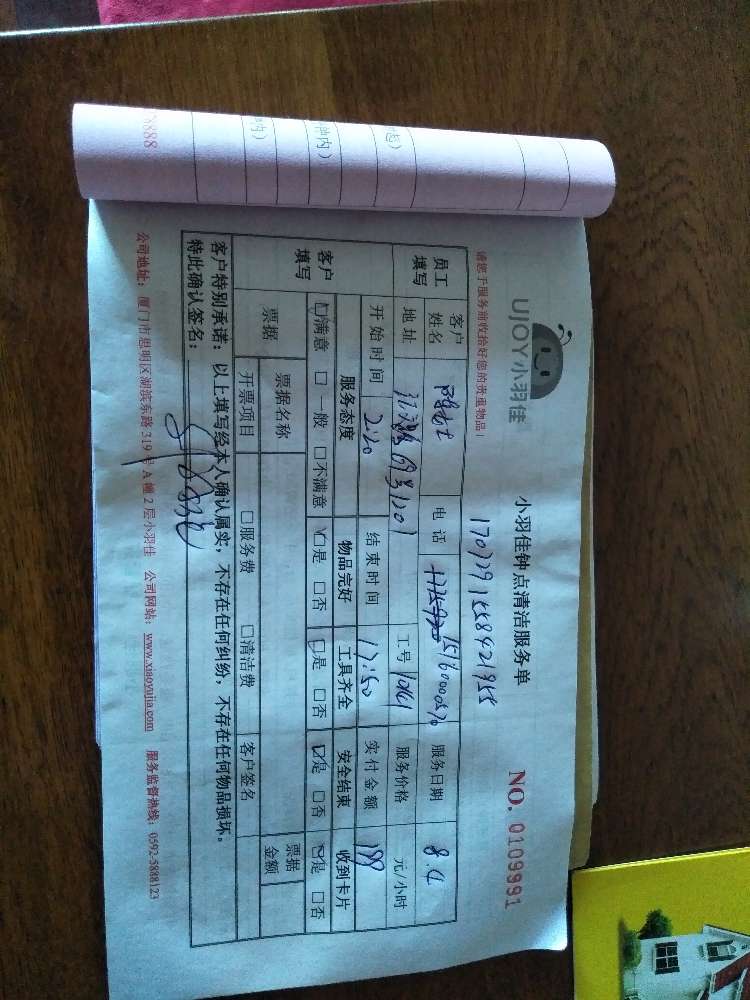 8888
UJOY小羽佳
小羽佳钟点清洁服务单
NO. 0109991
请您于服务前收拾好您的贵重物品!
1707291558421955
员工填写 客户姓名 电话 15160000570 服务日期 8.4
地址 工号 10161 服务价格 元/小时
开始时间 2:20 结束时间 17:50 实付金额 199
客户填写 服务态度 物品完好 工具齐全 安全结束 收到卡片
☑满意 □一般 □不满意 ☑是 □否 ☑是 □否 ☑是 □否 ☑是 □否
票据 票据名称 票据金额
开票项目 □服务费 □清洁费 客户签名
客户特别承诺：以上填写经本人确认属实，不存在任何纠纷，不存在任何物品损坏。
特此确认签名：
公司地址：厦门市思明区湖滨东路319号A幢2层小羽佳 公司网站：www.xiaoyujia.com 服务监督热线：0592-5888123